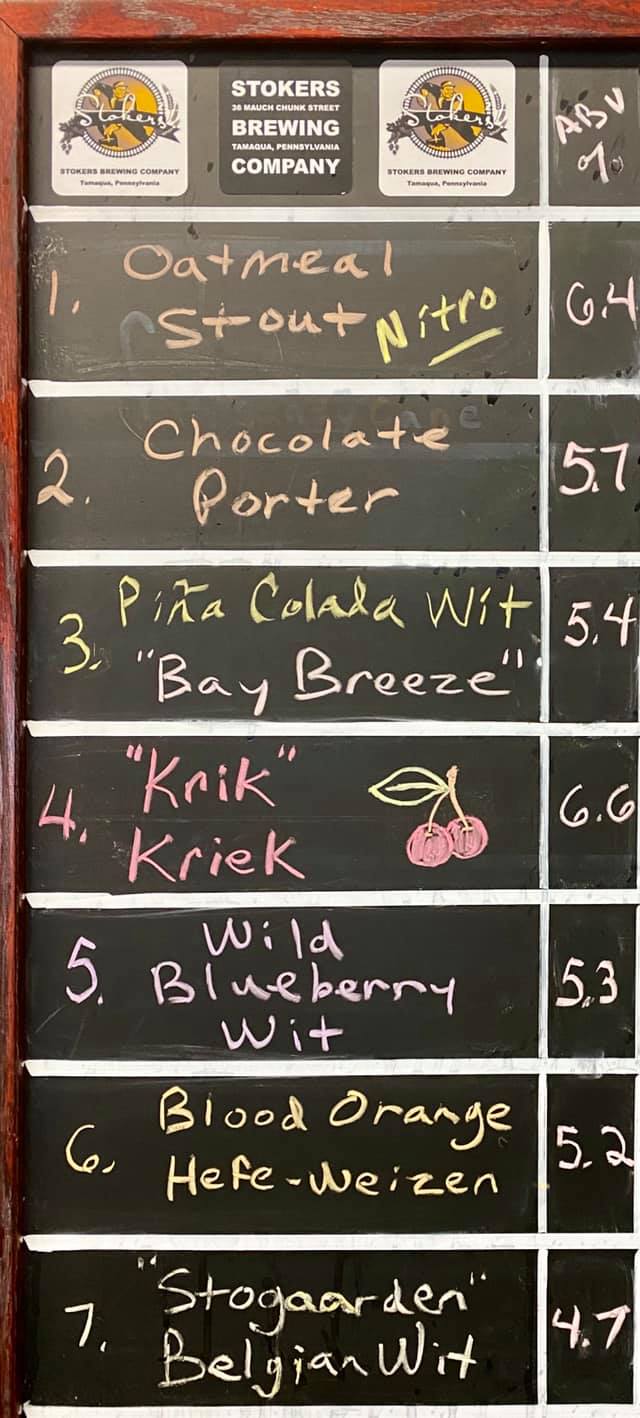 Stokers
STOKERS BREWING COMPANY
Tamaqua, Pennsylvania
STOKERS
36 MAUCH CHUNK STREET
BREWING
TAMAQUA, PENNSYLVANIA
COMPANY
Stokers
STOKERS BREWING COMPANY
Tamaqua, Pennsylvania
ABV
%
1. Oatmeal
Stout Nitro
6.4
2. Chocolate
Porter
5.7
3. Piña Colada Wit
"Bay Breeze"
5.4
4. "Krik"
Kriek
6.6
5. Wild
Blueberry
Wit
5.3
6. Blood Orange
Hefe-Weizen
5.2
7. "Stogaarden"
Belgian Wit
4.7